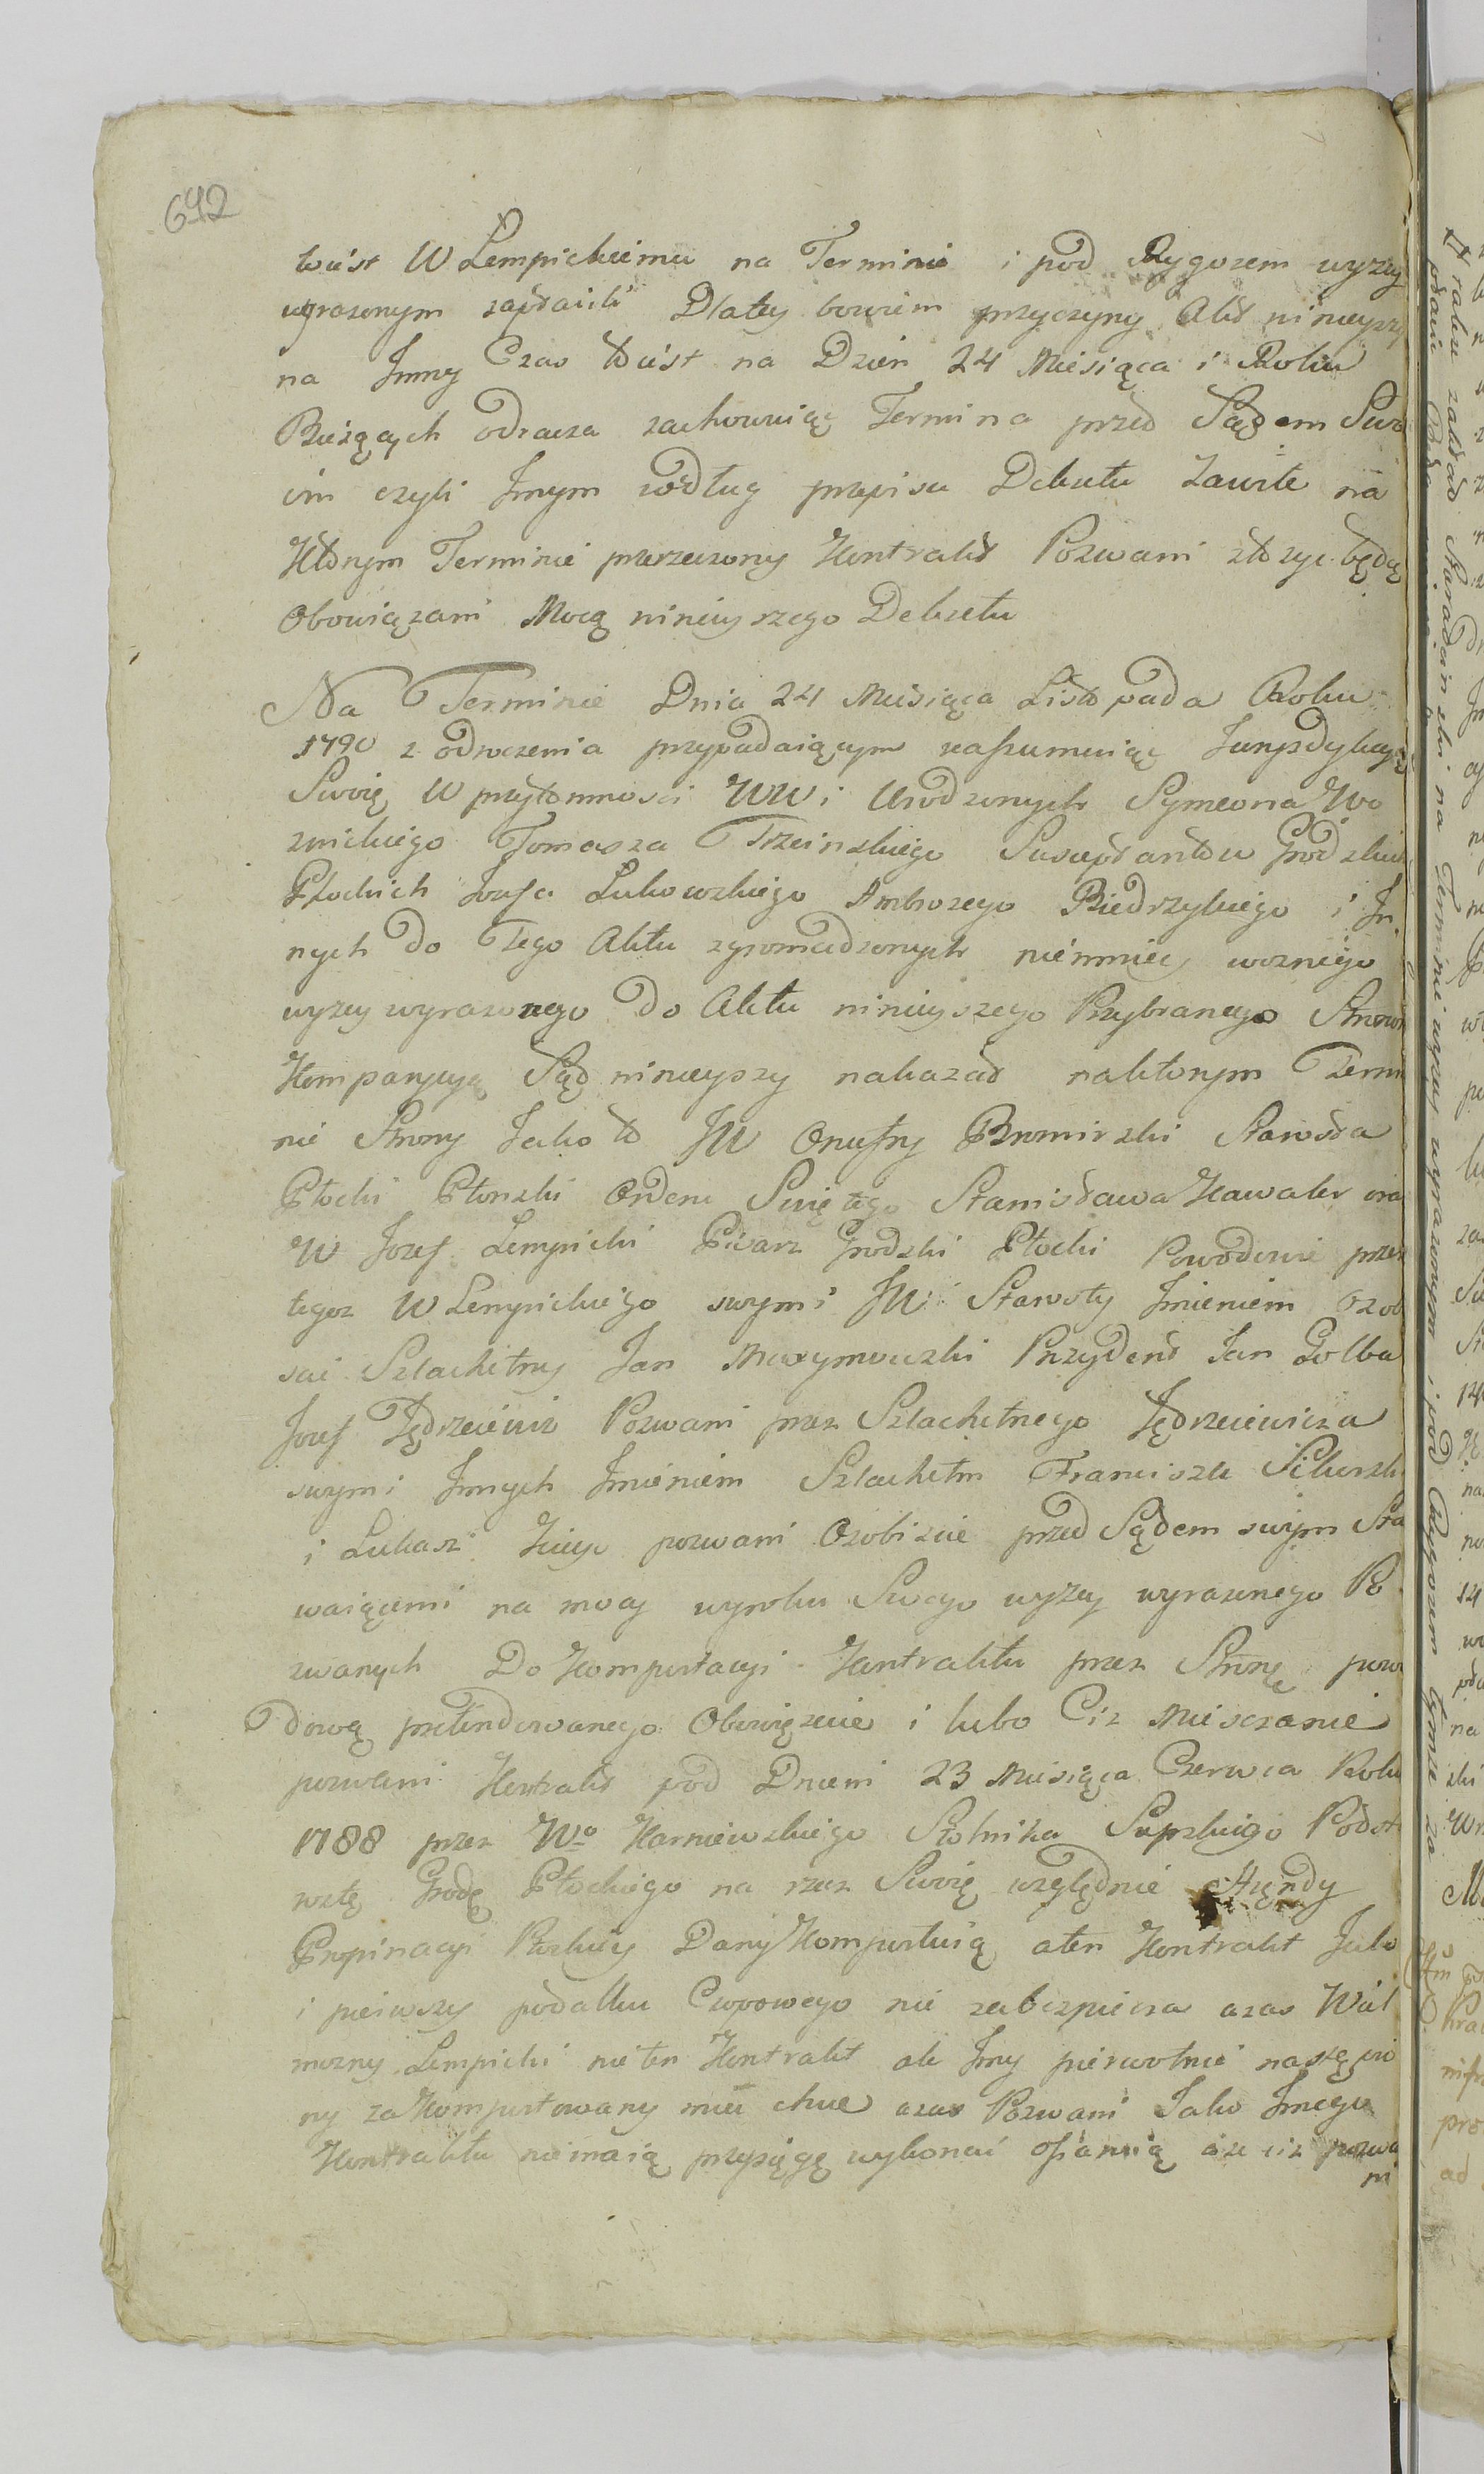 692
to iest W Lempickiemu na Terminie i pod Rygorem wyzey
wyrazonym zapłacili Dlatey bowiem przyczyny Akt ninieyszy
na Jnny Czas to iest na Dzien 24 Miesiąca i Roku
Bieżących odracza zachowuiąc Termina przed Sądem Swo
im czyli Jnnym według przepisu Dekretu Zawite na
Którym Terminie przerzeczony Kontrakt Pozwani złozyc będą
Obowiązani Mocą ninieyszego Dekretu
Na Terminie Dnia 24 Miesiąca Listopada Roku
1790 z odroczenia przypadaiącym reassumuiąc Jurysdykcyą
Swoię W przytomnosci WW i Urodzonych Symeona Wo
znickiego Tomasza Trzcinskiego Susceptantow Grodzkich
Płockich Jozefa Lukowskiego Ambrozego Biedrzyckiego i Jn
nych do Tego Aktu zgromadzonych niemniey woznego
wyzey wyrazonego Do Aktu ninieyszego Przybranego Stronom
Komparycyą Sąd ninieyszy nakazał naktorym Termi
nie Strony Jako to JW Onufry Bromirski Starosta
Płocki Płonski Orderu Swiętego Stanisława Kawaler oraz
W Jozef Lempicki Pisarz Grodzki Płocki Powodowie przez
tegoz W Lempickiego swym i JW Starosty Jmieniem Ozob
sci Szlachetny Jan Maxymowski Prezydent Jan Golba
Jozef Jędrzeiewicz Pozwani przez Szlachetnego Jędrzeiewicza
swym i Jnnych Jmieniem Szlachetni Franciszek Sikorski
i Lukasz pozwani Osobiscie przed Sądem swym Sta
waiącemi na mocy wyroku Swego wyzey wyrazonego Po
zwanych Do Komportacyi Kontraktu przez Stronę powo
dową pretendowanego Obowięzuie i lubo Ciz Miesczanie
pozwani Kontrakt pod Dniem 23 Miesiąca Czerwca Roku
1788 przez Wo Karniewskiego Stolnika Podsta
rostę Grodu Płockiego na rzecz Swoię względnie Arędy
Propinacyi Roczney Dany Komportuią aten Kontrakt Jako
i pierwszy podatku Czopowego nie zabezpiecza azas Wiel
mozny Lempicki nie ten Kontrakt ale Jnny pierwotnie nastąpio
ny zakomportowany miec chce azas Pozwani Jako Jnnego
Kontraktu niemaią przysięgę wykonać ofiaruią aze ciz pozwa
ni